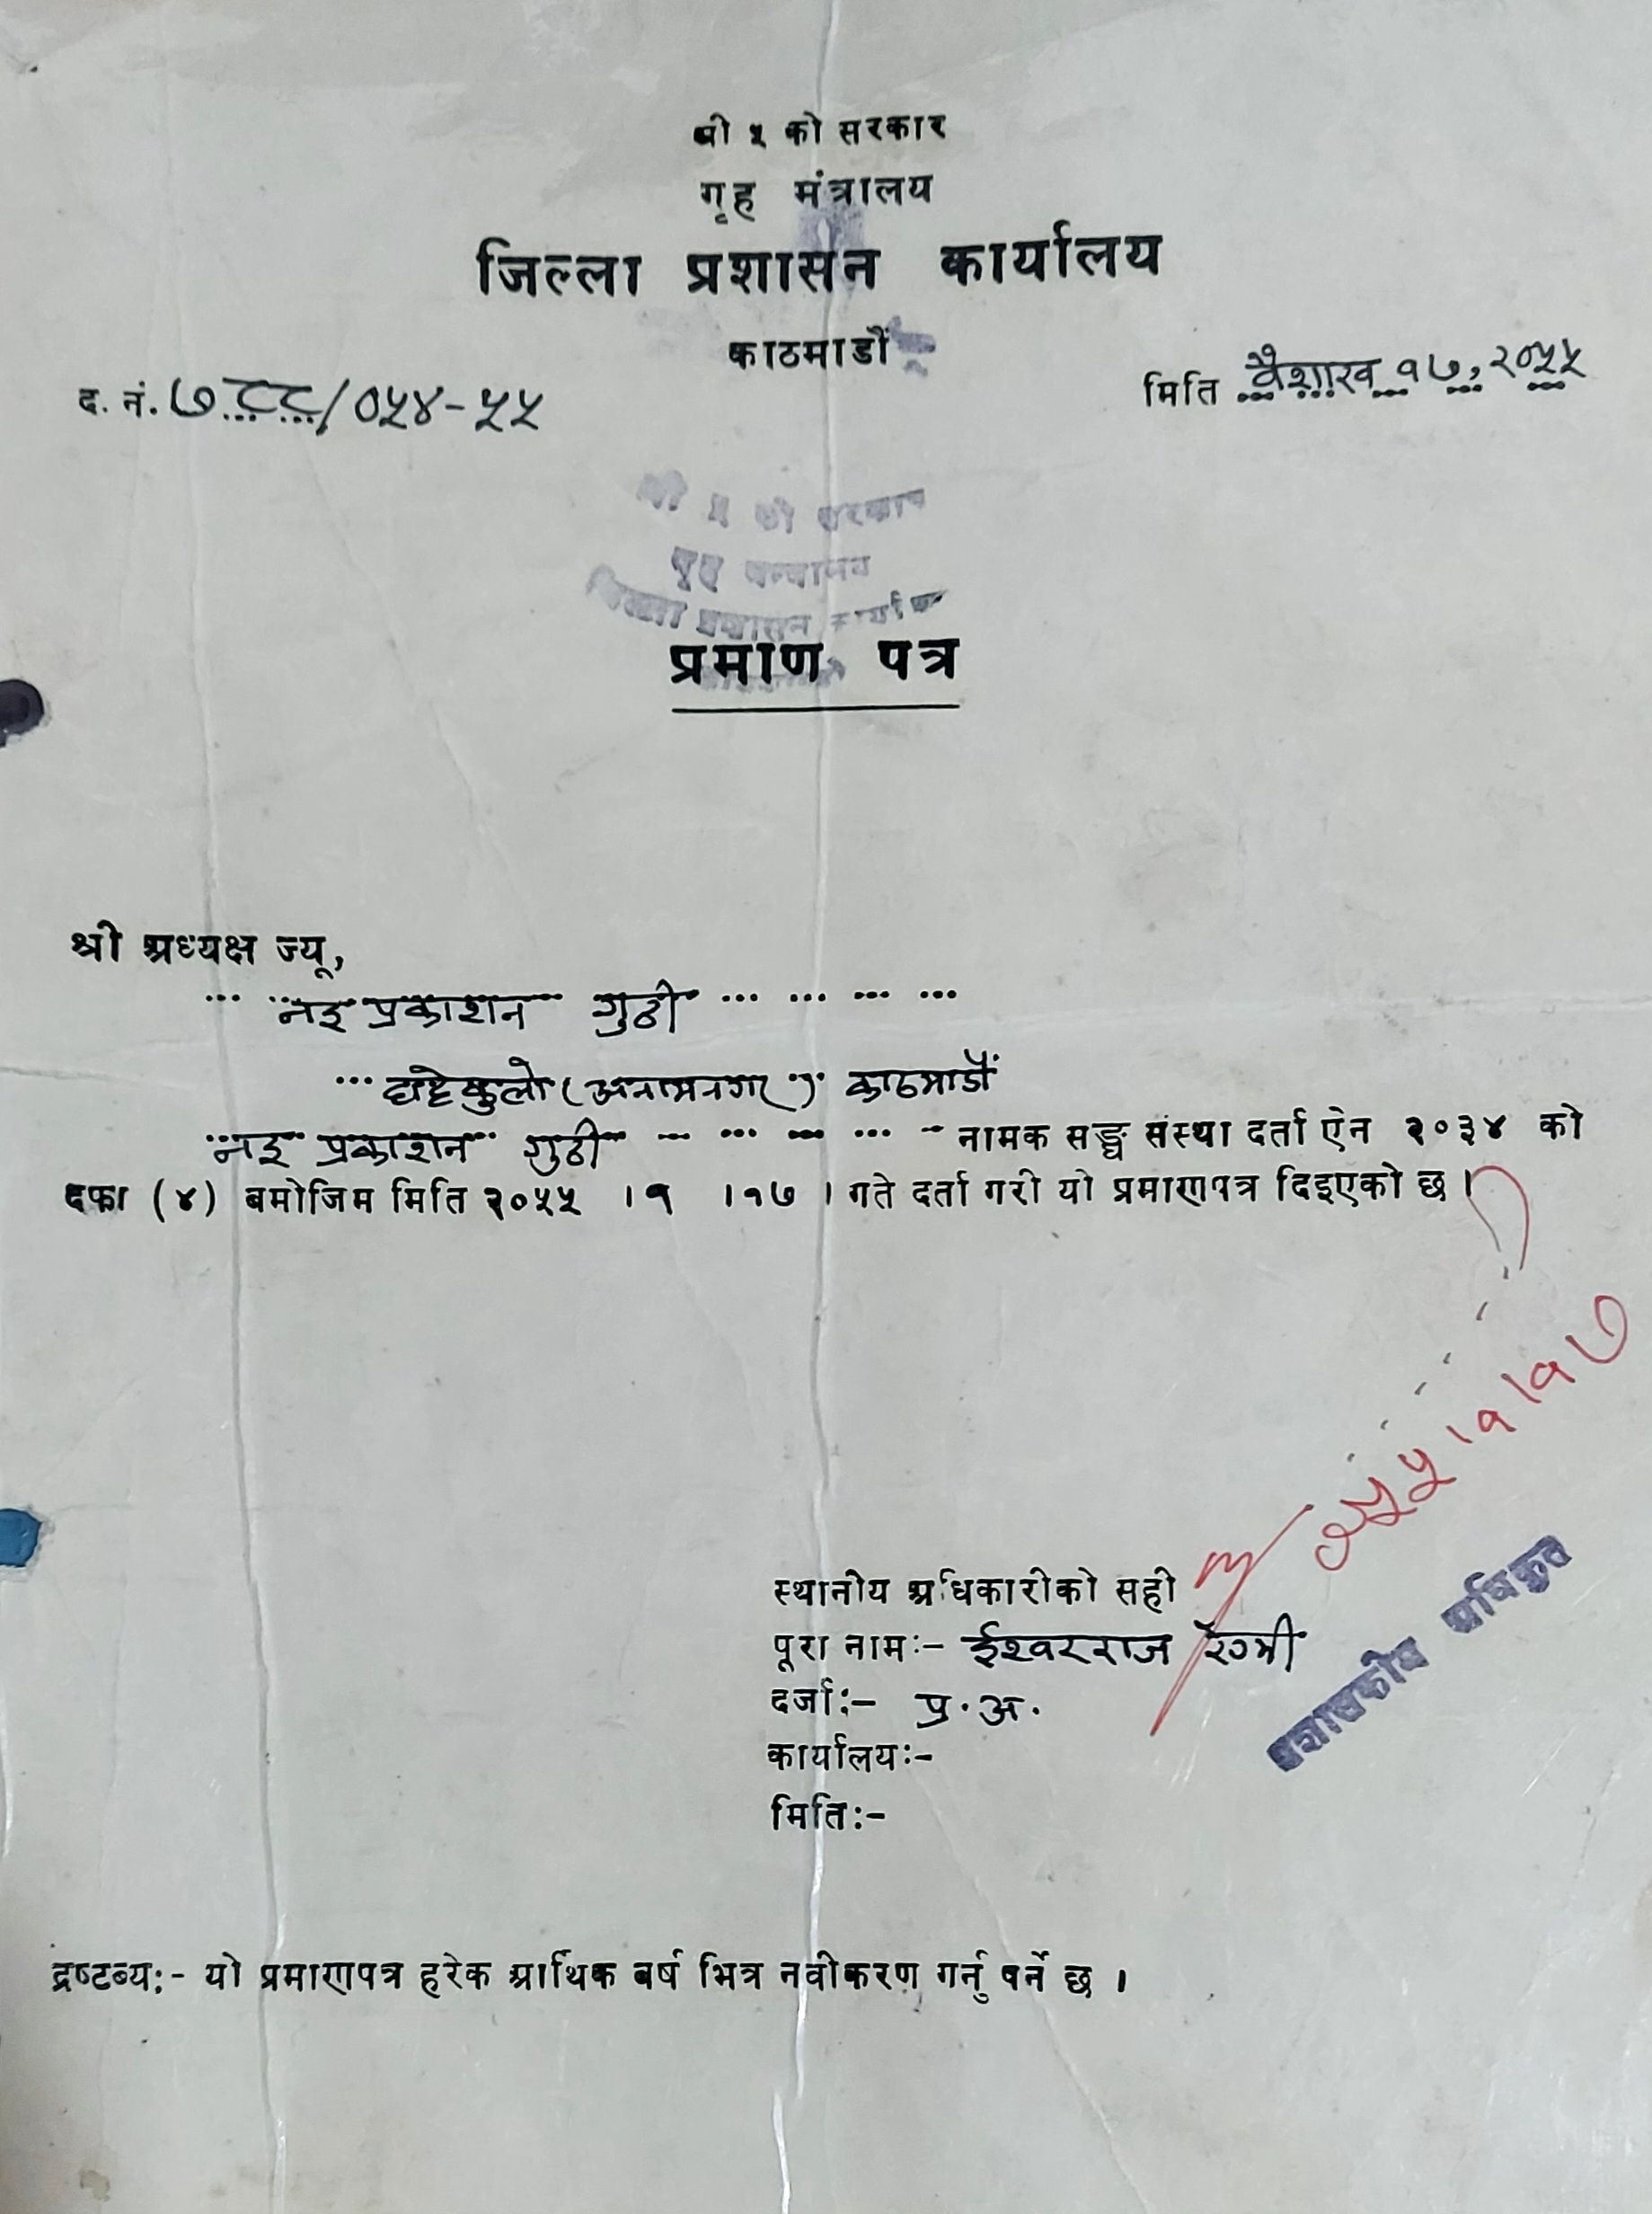 श्री ५ को सरकार
गृह मंत्रालय
जिल्ला प्रशासन कार्यालय
काठमाडौं
द. नं. ७८८/०५४-५५
मिति वैशाख १७, २०५५
श्री ५ को सरकार
गृह मन्त्रालय
जिल्ला प्रशासन कार्यालय
प्रमाण पत्र
श्री अध्यक्ष ज्यू,
... नइ प्रकाशन गुठी ... ... ... ...
... घट्टेकुलो (अनामनगर) काठमाडौं
नइ प्रकाशन गुठी ... ... ... ... नामक सङ्घ संस्था दर्ता ऐन २०३४ को
दफा (४) बमोजिम मिति २०५५ ।१ ।१७ । गते दर्ता गरी यो प्रमाणपत्र दिइएको छ ।
२०५५।१।१७
स्थानीय अधिकारीको सही
पूरा नामः- ईश्वरराज रेग्मी
दर्जाः- प्र. अ.
कार्यालयः-
मितिः-
प्रशासकीय अधिकृत
द्रष्टव्यः- यो प्रमाणपत्र हरेक आर्थिक बर्ष भित्र नवीकरण गर्नु पर्ने छ ।